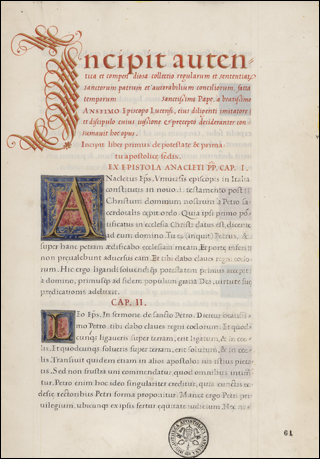 Incipit auten-
tica et compen diosa collectio regularum et sententiarum
sanctorum patrum et autorabilium conciliorum, facta
temporum Sanctissimi Pape, a beatissimo
ANSELMO Episcopo Lucensi, eius diligenti imitatore
et discipulo cuius iussione et precepto desideranter con
summauit hoc opus.
Incipit liber primus de potestate & prima
tu apostolicę sedis.
EX EPISTOLA ANACLETI PP. CAP. I.
Anacletus Eps. Vniuersis episcopis in Italia
constitutis in nouo testamento post
Christum dominum nostrum a Petro sa
cerdotalis cępit ordo. Quia ipsi primo pon
tificatus in ecclesia Christi datus est, dicente
ad eum domino. Tu es (inquit) Petrus, &
super hanc petram ædificabo ecclesiam meam, Et portę inferi
non pręualebunt aduersus eam. Et tibi dabo claues regni cœlo
rum. Hic ergo ligandi soluendique potestatem primus accepit
a domino, primusque ad fidem populum gratia Dei, virtute suę
predicationis adduxit.
CAP. II.
Leo Eps. In sermone de sancto Petro.
mo Petro, tibi dabo claues regni cœlorum. Et quod
cunque ligaueris super terram, erit ligatum, & in cœ
lis. Et quodcunque solueris super terram, erit solutum, & in cœ
lis. Transiuit quidem etiam in alios apostolos ius istius potesta
tis, Sed non frustra uni commendatur, quod omnibus intimetur
Petro enim hoc ideo singulariter creditur, quia cunctis ec
clesię rectoribus Petri forma proponitur. Manet ergo Petri pri
uilegium, ubicunque ex ipsius fertur equitate iudicium.
61